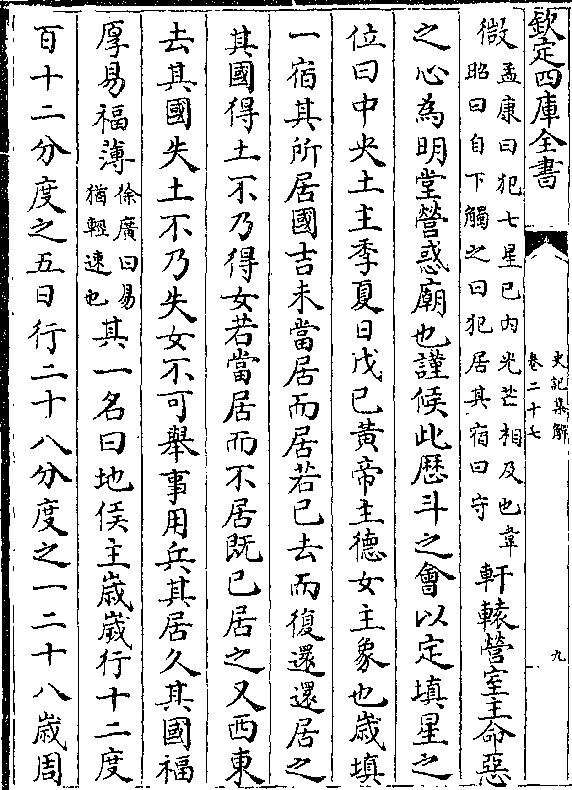 欽定四庫全書
史記集解
卷二十七
九
微孟康曰犯七星已内光芒相及也韋
昭曰自下觸之曰犯居其宿曰守軒轅營室主命惡
之心為明堂營惑廟也謹候此歴斗之會以定填星之
位曰中央土主季夏日戊己黃帝主德女主象也歲填
一宿其所居國吉未當居而居若已去而復還還居之
其國得土不乃得女若當居而不居既已居之又西東
去其國失土不乃失女不可舉事用兵其居久其國福
厚易福薄徐廣曰易
猶輕速也其一名曰地侯主歲歲行十二度
百十二分度之五日行二十八分度之一二十八歲周